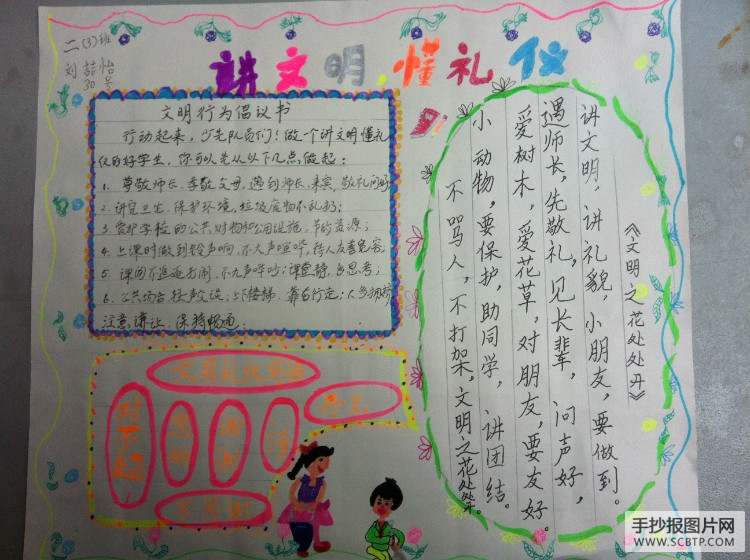 二(3)班
刘喆怡
30号
讲文明,懂礼仪
文明行为倡议书
行动起来,少先队员们!做一个讲文明懂礼
仪的好学生,你可以先从以下几点做起:
1. 尊敬师长、孝敬父母,遇到师长、来宾,敬礼问好
2. 讲究卫生,保护环境,垃圾废物不乱扔;
3. 爱护学校的公共财物和公用设施,节约资源;
4. 上课时做到铃声响,不大声喧哗,待人友善宽容;
5. 课间不追逐打闹,不九声哗吵;课堂静,多思考;
6. 公共场合轻声交谈;上下楼梯,靠右行走;
注意谦让,保持畅通。
《文明之花处处开》
讲文明,讲礼貌,小朋友,要做到。
遇师长,先敬礼,见长辈,问声好,
爱树木,爱花草,对朋友,要友好。
小动物,要保护,助同学,讲团结。
不骂人,不打架,文明之花处处开。
文明礼仪用语
对不起
您好
谢谢
请
再见
不客气
手抄报图片网
WWW.SCBTP.COM